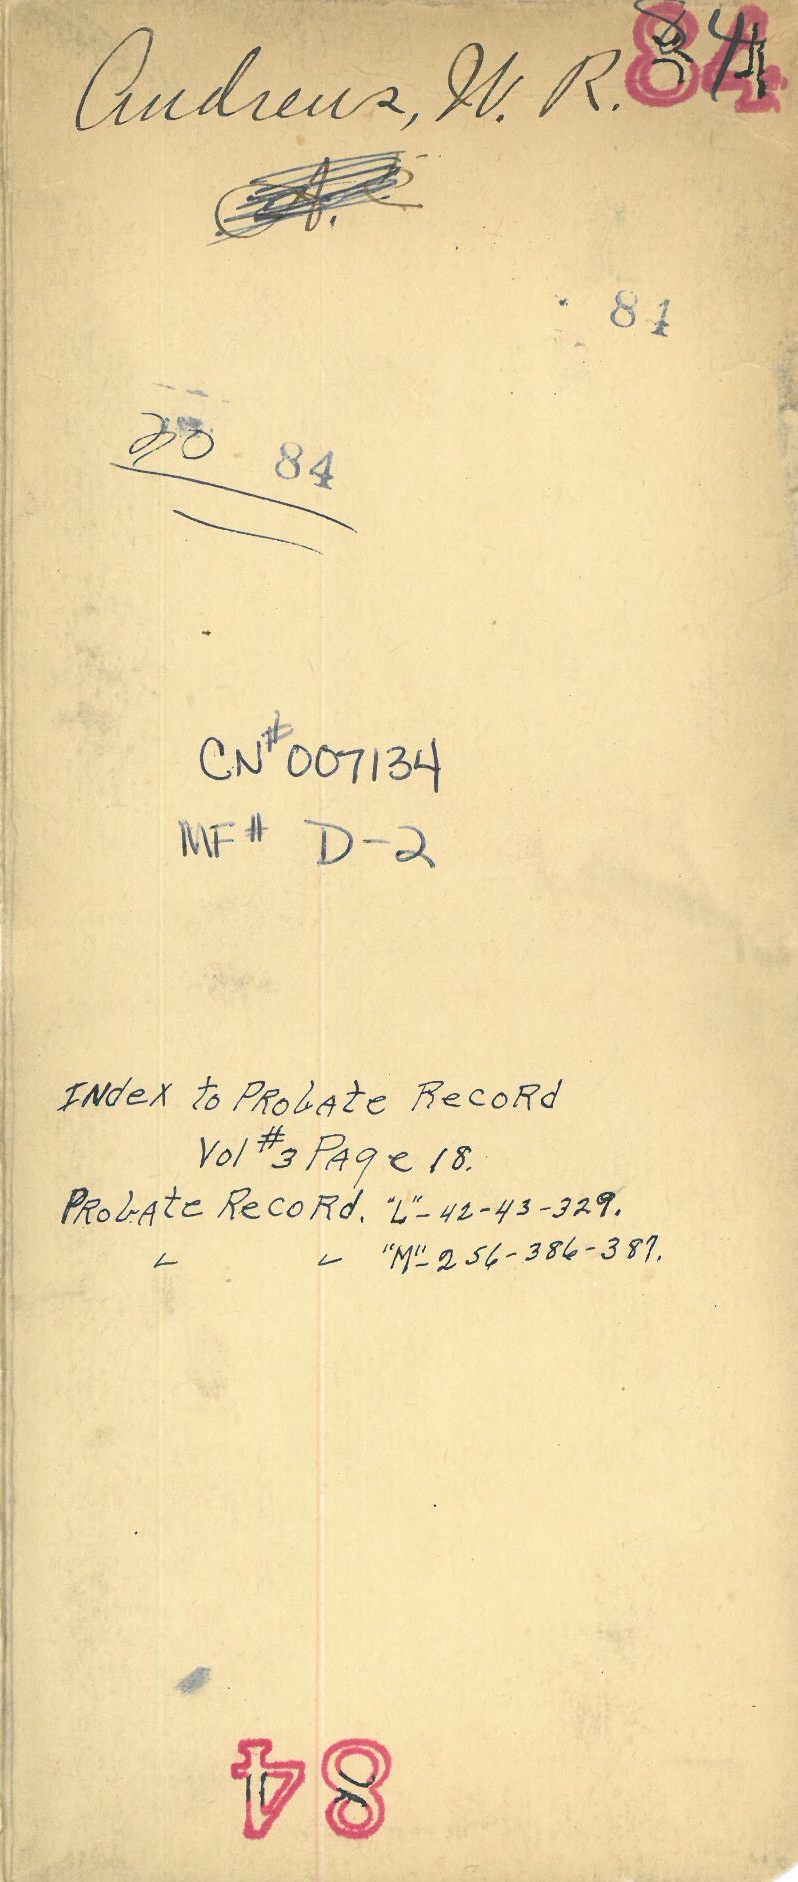 Andrews, W. R. 84
84
20 84
CN# 007134
MF# D-2
Index to Probate Record
Vol #3 Page 18.
Probate Record. "L"-42-43-329.
" " "M"-256-386-387.
84